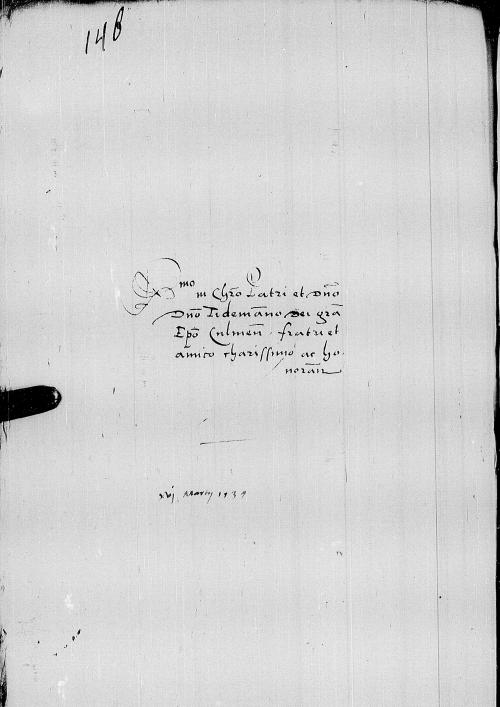 148
Rmo in Chro Patri et Dno
Dno Tidemano Dei gra
Epo Culmen̄ fratri et
amico charissimo ac ho
noran̄
xvj Martij 1539